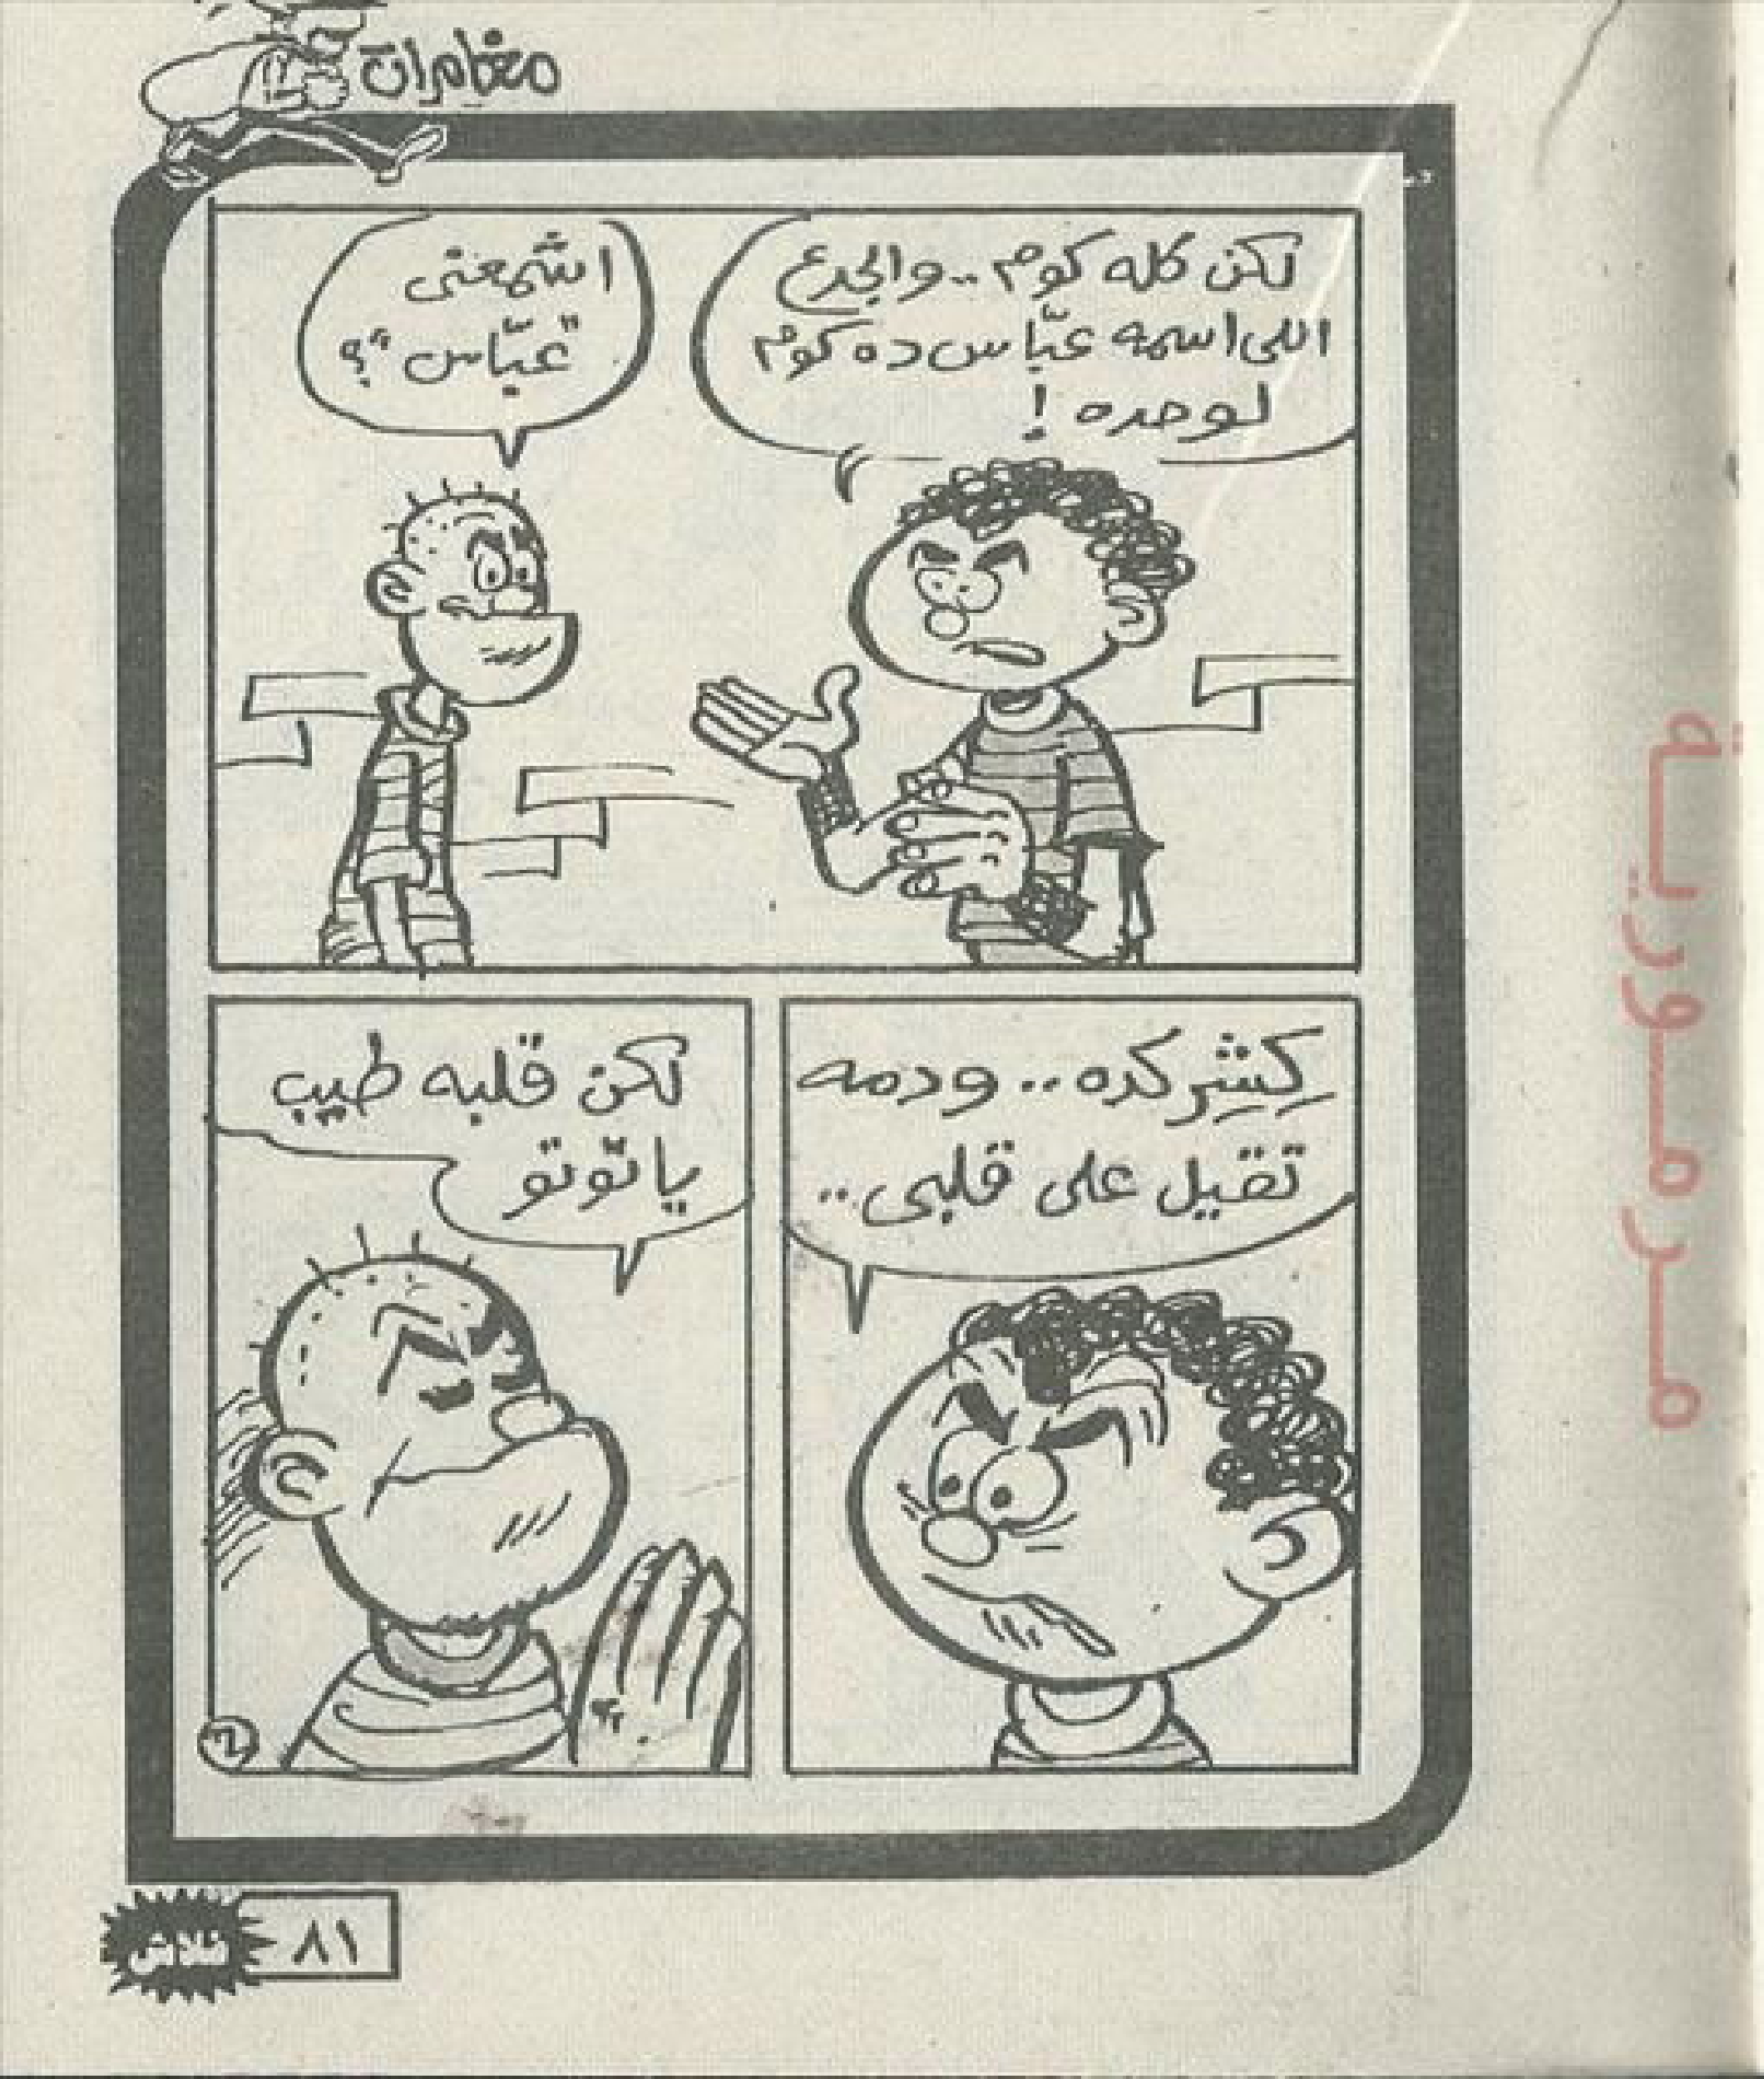 مغامرات
لكن كله كوم.. والجدع
اللى اسمه عبّاس ده كوم
لوحده !
اشمعنى
"عبّاس"؟
كِشِر كده.. ودمه
تقيل على قلبى..
لكن قلبه طيب
يا توتو
٢
٨١
فلاش
مرمورية